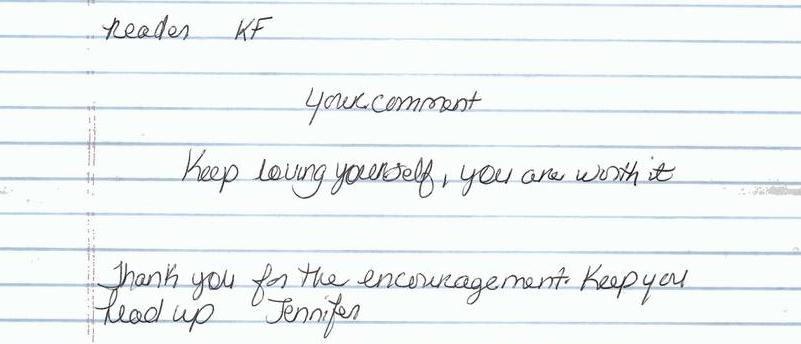 Reader KF
Your comment
Keep loving yourself, you are worth it
Thank you for the encouragement. Keep you
head up Jennifer